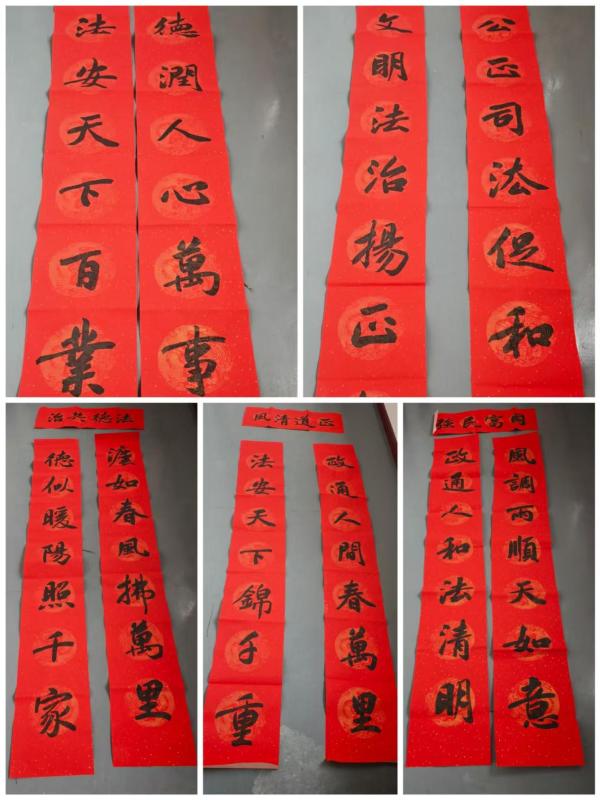 德潤人心萬事
法安天下百業
公正司法促和
文明法治揚正
法德共治
灋如春風拂萬里
德似暖陽照千家
正道清風
政通人間春萬里
法安天下錦千重
國富民強
風調雨順天如意
政通人和法清明